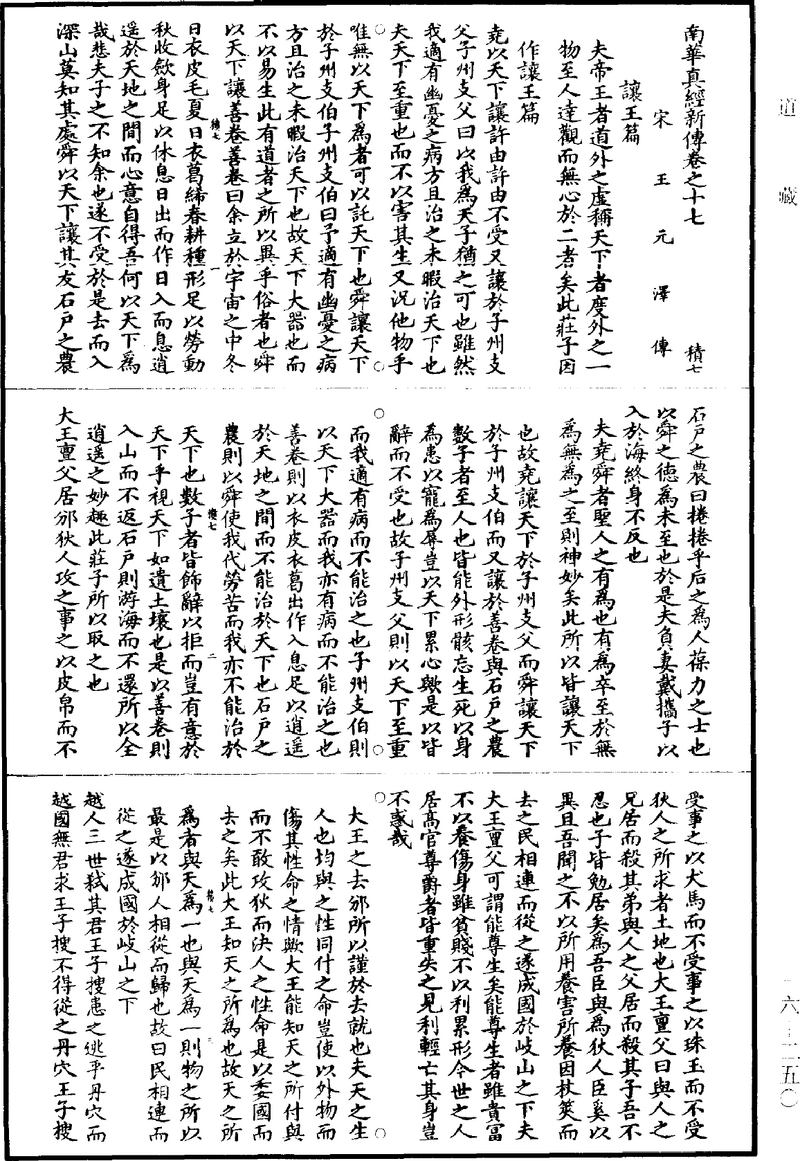 道藏
南華真經新傳卷之十七
積七
宋王元澤傳
讓王篇
夫帝王者道外之虛稱天下者度外之一
物至人達觀而無心於二者矣此莊子因
作讓王篇
堯以天下讓許由許由不受又讓於子州支
父子州支父曰以我為天子猶之可也雖然
我適有幽憂之病方且治之未暇治天下也
夫天下至重也而不以害其生又況他物乎
唯無以天下為者可以託天下也舜讓天下
於子州支伯子州支伯曰予適有幽憂之病
方且治之未暇治天下也故天下大器也而
不以易生此有道者之所以異乎俗者也舜
以天下讓善卷善卷曰余立於宇宙之中冬
積七
一
日衣皮毛夏日衣葛絺春耕種形足以勞動
秋收歛身足以休息日出而作日入而息逍
遥於天地之間而心意自得吾何以天下為
哉悲夫子之不知余也遂不受於是去而入
深山莫知其處舜以天下讓其友石戶之農
石戶之農曰捲捲乎后之為人葆力之士也
以舜之德為未至也於是夫負妻戴攜子以
入於海終身不反也
夫堯舜者聖人之有為也有為卒至於無
為無為之至則神妙矣此所以皆讓天下
也故堯讓天下於子州支父而舜讓天下
於子州支伯而又讓於善卷與石戶之農
數子者至人也皆能外形骸忘生死以身
為患以寵為辱豈以天下累心歟是以皆
辭而不受也故子州支父則以天下至重
而我適有病而不能治之也子州支伯則
以天下大器而我亦有病而不能治之也
善卷則以衣皮衣葛出作入息足以逍遥
於天地之間而不能治於天下也石戶之
農則以舜使我代勞苦而我亦不能治於
積七
二
天下也數子者皆飾辭以拒而豈有意於
天下乎視天下如遺土壤也是以善卷則
入山而不返石戶則游海而不還所以全
逍遥之妙趣此莊子所以取之也
大王亶父居邠狄人攻之事之以皮帛而不
受事之以犬馬而不受事之以珠玉而不受
狄人之所求者土地也大王亶父曰與人之
兄居而殺其弟與人之父居而殺其子吾不
忍也子皆勉居矣為吾臣與為狄人臣奚以
異且吾聞之不以所用養害所養因杖筴而
去之民相連而從之遂成國於岐山之下夫
大王亶父可謂能尊生矣能尊生者雖貴富
不以養傷身雖貧賤不以利累形今世之人
居高官尊爵者皆重失之見利輕亡其身豈
不惑哉
大王之去邠所以謹於去就也夫天之生
人也均與之性同付之命豈使以外物而
傷其性命之情歟大王能知天之所付與
而不敢攻狄而決人之性命是以委國而
去之矣此大王知天之所為也故天之所
積七
三
為者與天為一也與天為一則物之所以
最是以邠人相從而歸也故曰民相連而
從之遂成國於岐山之下
越人三世弒其君王子搜患之逃乎丹穴而
越國無君求王子搜不得從之丹穴王子搜
六‐二五〇